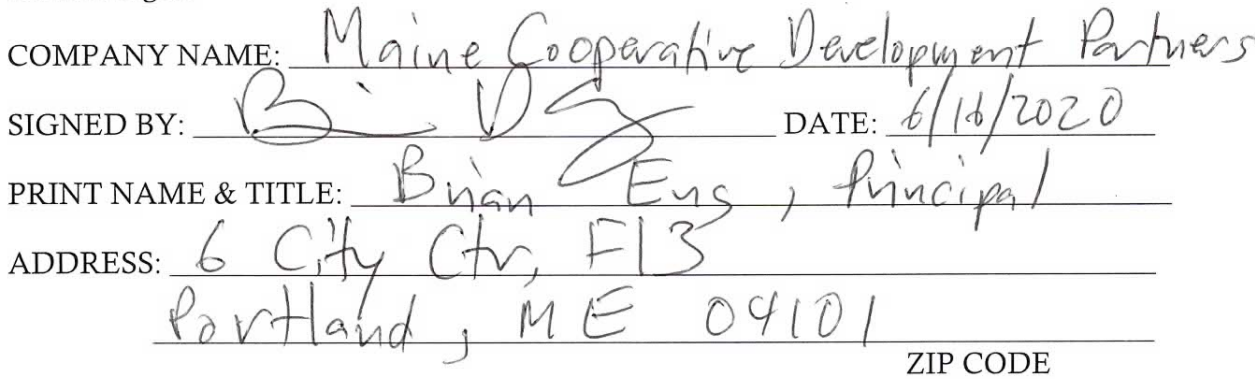 COMPANY NAME: Maine Cooperative Development Partners
SIGNED BY: DATE: 6/16/2020
PRINT NAME & TITLE: Brian Eng, Principal
ADDRESS: 6 City Ctr, Fl 3
Portland, ME 04101
ZIP CODE